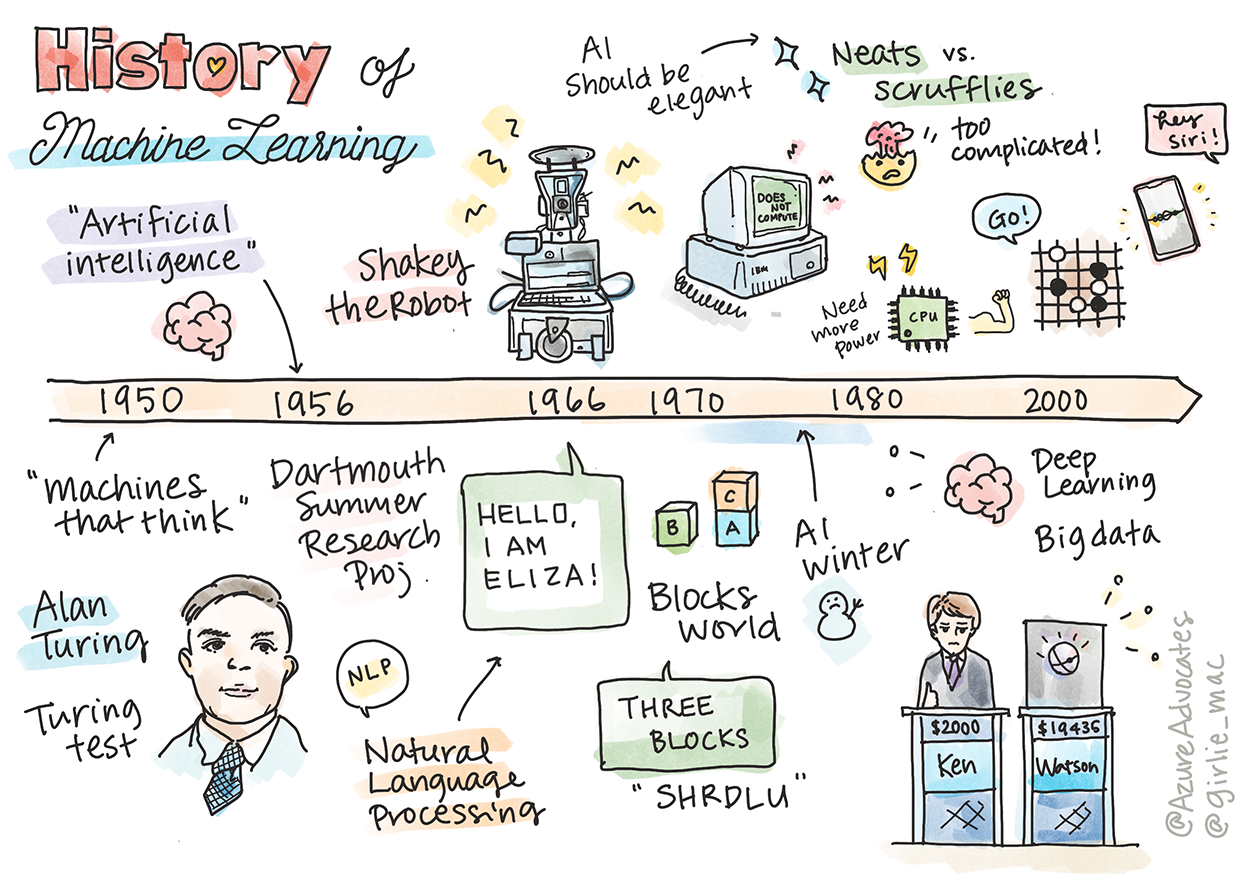 History of
Machine Learning
"Artificial
intelligence"
Shakey
the Robot
AI
Should be
elegant
Neats vs.
scrufflies
too
complicated!
hey
Siri!
DOES
NOT
COMPUTE
IBM
GO!
Need
more
power
CPU
1950 1956 1966 1970 1980 2000
"machines
that think"
Alan
Turing
Turing
test
Dartmouth
Summer
Research
Proj.
NLP
Natural
Language
Processing
HELLO,
I AM
ELIZA!
B
C
A
Blocks
world
THREE
BLOCKS
"SHRDLU"
AI
winter
Deep
Learning
Big data
$2000
Ken
$19435
Watson
@AzureAdvocates
@girlie_mac